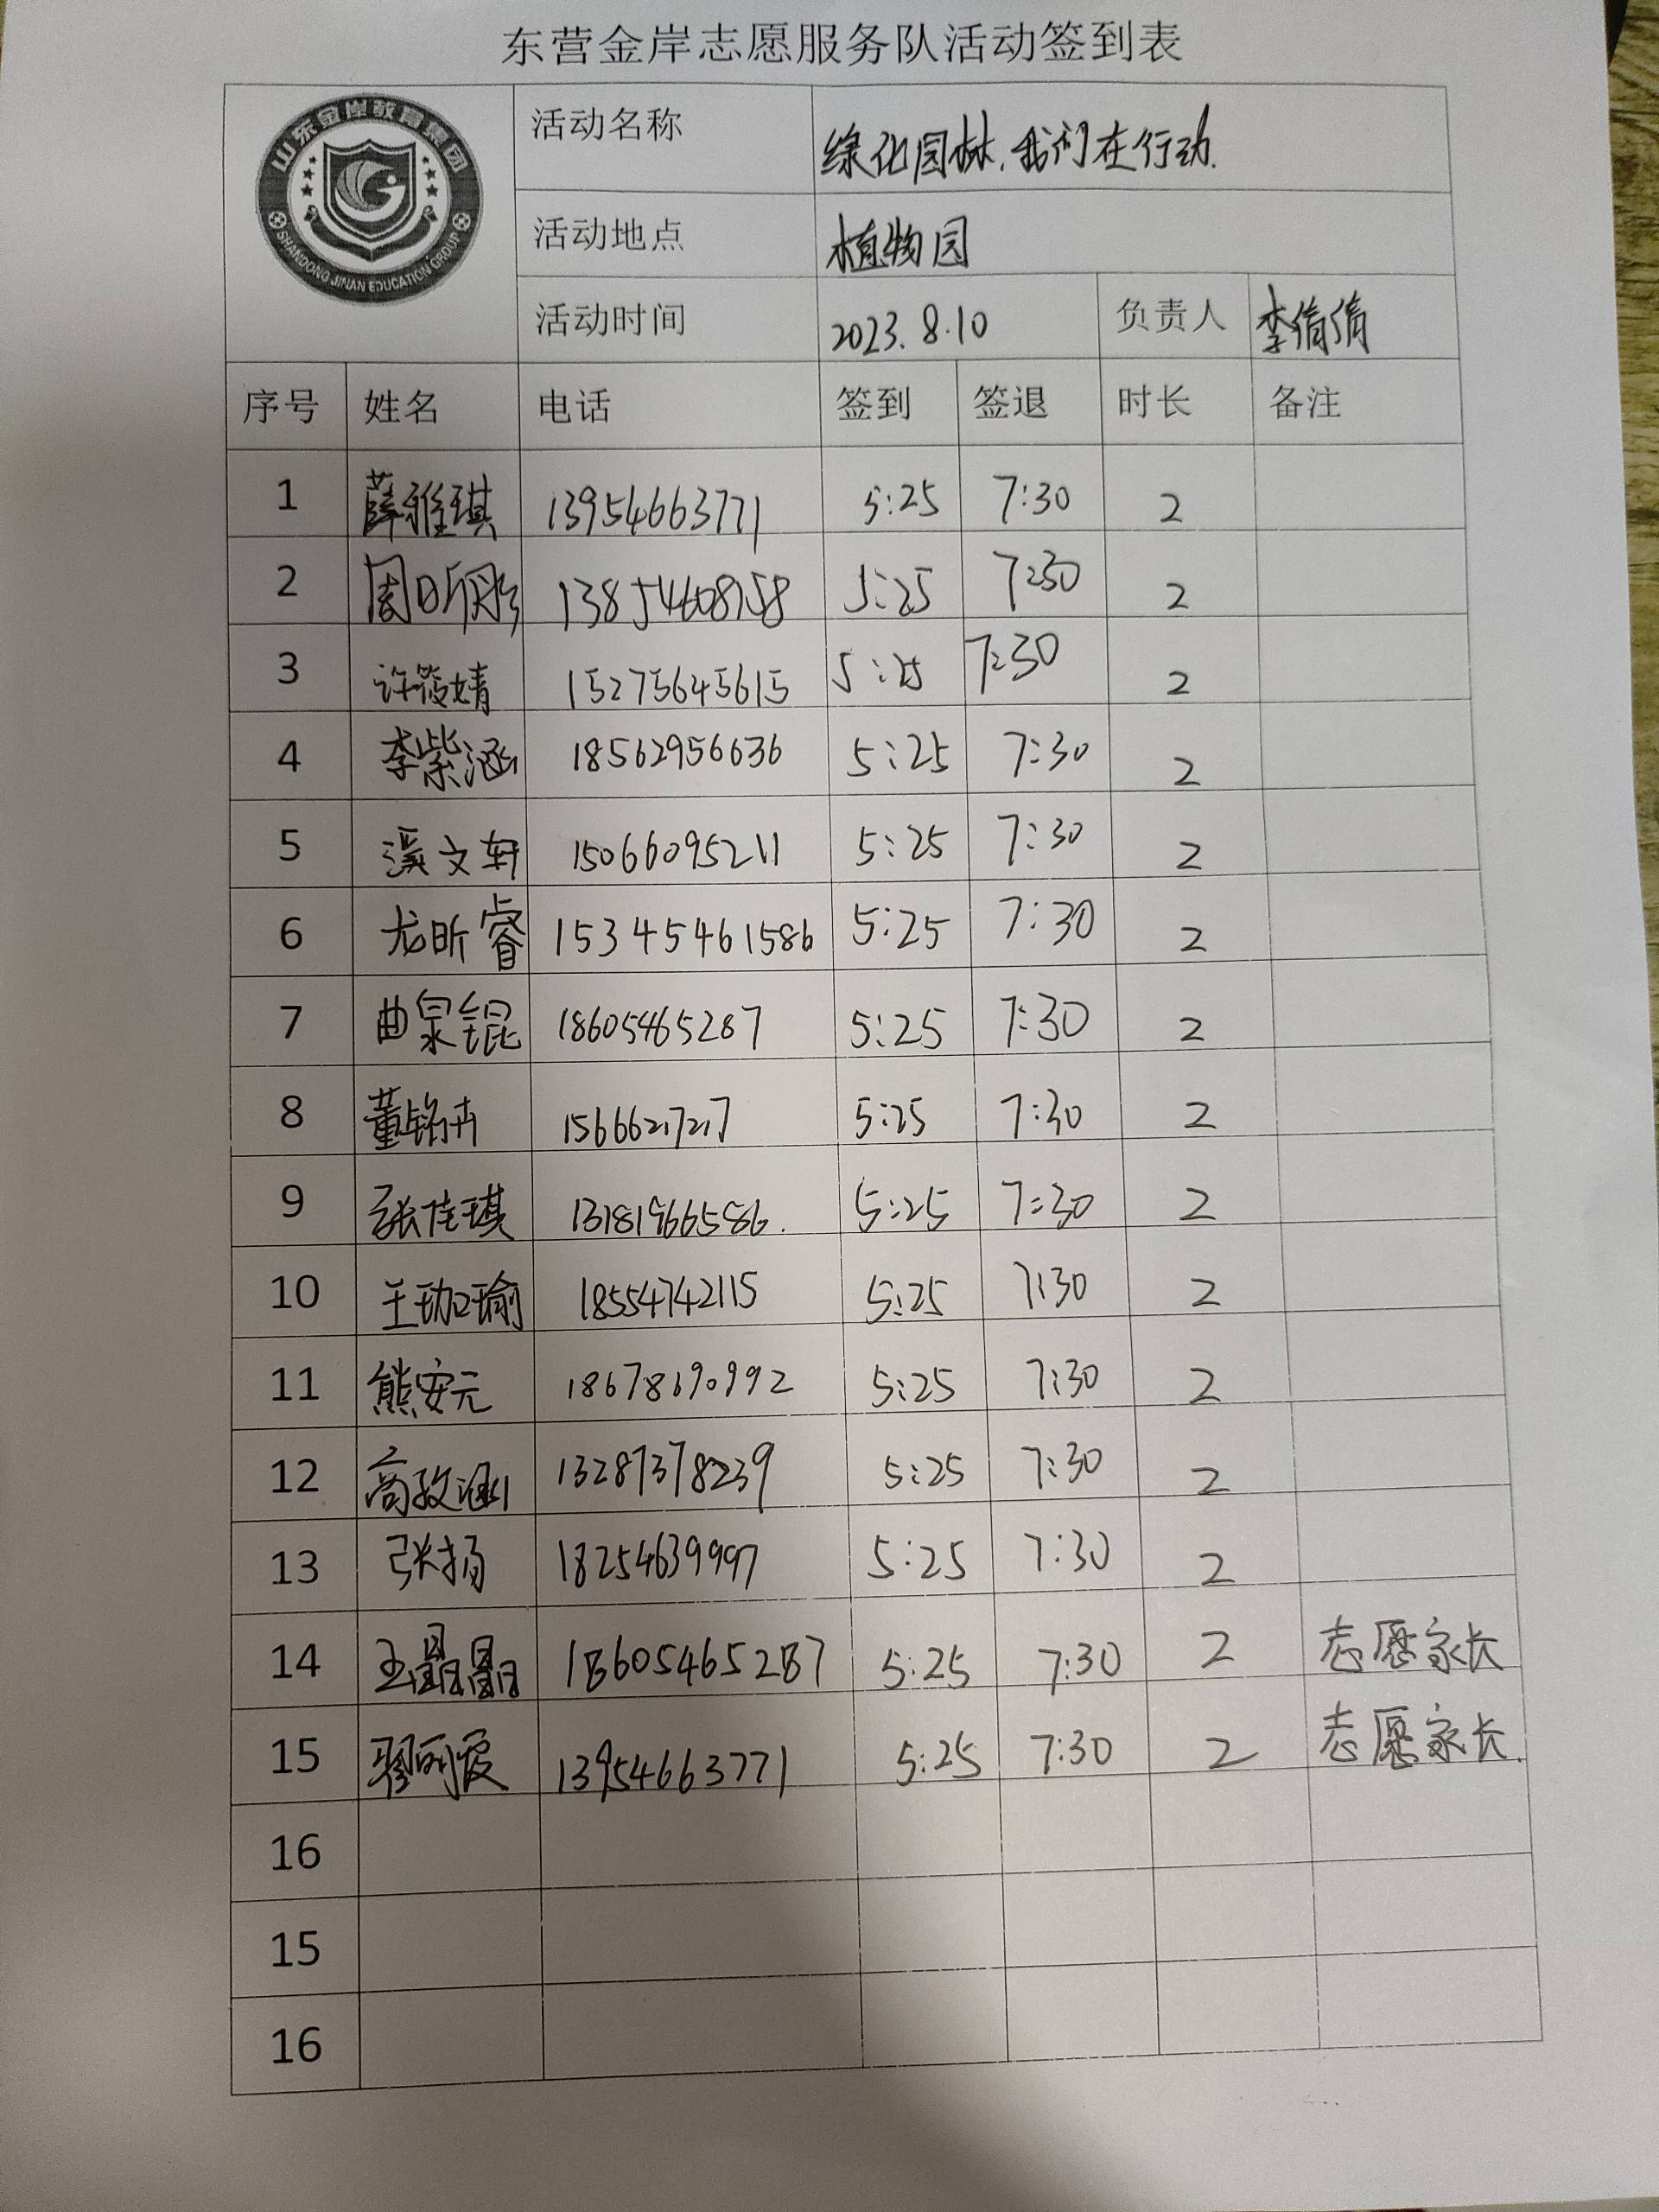 东营金岸志愿服务队活动签到表
山东金岸教育集团
SHANDONG JINAN EDUCATION GROUP
活动名称 绿化园林,我们在行动.
活动地点 植物园
活动时间 2023.8.10 负责人 李倩倩
序号 姓名 电话 签到 签退 时长 备注
1 薛雅琪 13954663771 5:25 7:30 2
2 周昕彤 13854608758 5:25 7:30 2
3 许筱婧 15275645615 5:25 7:30 2
4 李紫涵 18562956636 5:25 7:30 2
5 溪文轩 15066095211 5:25 7:30 2
6 尤昕睿 15345461586 5:25 7:30 2
7 曲泉锟 18605465287 5:25 7:30 2
8 董铭冉 1566621727 5:25 7:30 2
9 张佳琪 13181966586. 5:25 7:30 2
10 王珈瑜 18554742115 5:25 7:30 2
11 熊安元 18678690992 5:25 7:30 2
12 高孜涵 13287378239 5:25 7:30 2
13 张扬 18254639997 5:25 7:30 2
14 王晶晶 18605465287 5:25 7:30 2 志愿家长
15 翟丽霞 13954663771 5:25 7:30 2 志愿家长.
16
15
16